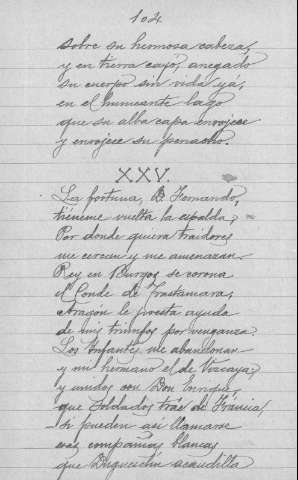 104
sobre su hermosa cabeza,
y en tierra cayó, anegado
su cuerpo sin vida yá,
en el humeante lago
que su alba capa enrojece
y enrojece su penacho.
XXV.
La fortuna, D. Fernando,
tiéneme vuelta la espalda;
Por donde quiera traidores
me cercan y me amenazan.
Rey en Burgos se corona
el Conde de Trastamara;
Aragón le presta ayuda
de mis triunfos por venganza;
Los Infantes me abandonan
y mi hermano el de Vizcaya;
y unidos con Don Enrique,
que soldados tráe de Fráncia,
si pueden asi llamarse
esas compañias blancas
que Duguesclin acaudilla